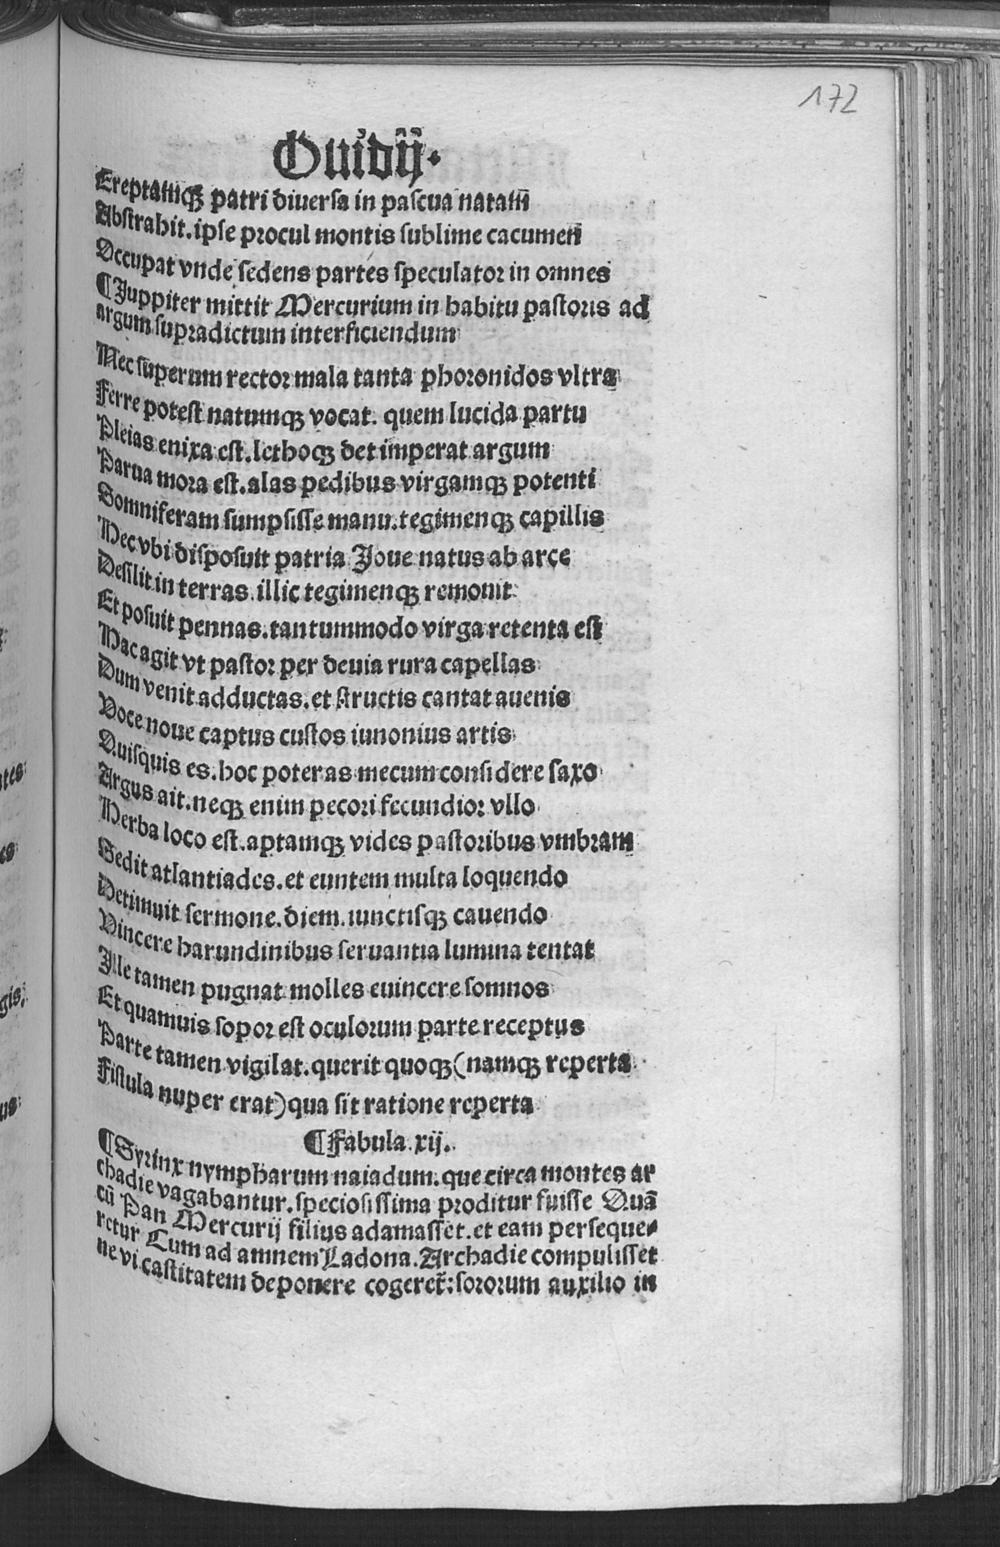 172
Ouidij.
Ereptamq̃ patri diuersa in pascua natam
Abstrahit.ipse procul montis sublime cacumen
Occupat vnde sedens partes speculator in omnes
¶Juppiter mittit Mercurium in habitu pastoris ad
argum supradictum interficiendum
Nec superum rector mala tanta phoronidos vltra
Ferre potest natumqꝫ vocat. quem lucida partu
Pleias enixa est.lethoqꝫ det imperat argum
Parua mora est.alas pedibus virgamqꝫ potenti
Somniferam sumpsisse manu.tegimenqꝫ capillis
Hec vbi disposuit patria Joue natus ab arce
Desilit in terras.illic tegimenqꝫ remouit
Et posuit pennas.tantummodo virga retenta est
Hac agit vt pastor per deuia rura capellas
Dum venit adductas.et structis cantat auenis
Voce noue captus custos iunonius artis
Quisquis es.hoc poteras mecum considere saxo
Argus ait.neqꝫ enim pecori fecundior vllo
Herba loco est.aptamqꝫ vides pastoribus vmbram
Sedit atlantiades.et euntem multa loquendo
Detinuit sermone.diem.iunctisqꝫ cauendo
Vincere harundinibus seruantia lumina tentat
Ille tamen pugnat molles euincere somnos
Et quamuis sopor est oculorum parte receptus
Parte tamen vigilat.querit quoqꝫ(namqꝫ reperta
Fistula nuper erat)qua sit ratione reperta
¶Fabula.xij.
¶Syrinx nympharum naiadum.que circa montes ar
chadie vagabantur.speciosissima proditur fuisse Quã
cũ Pan Mercurij filius adamasset.et eam perseque⸗
retur Cum ad amnem Ladona.Archadie compulisset
ne vi castitatem deponere cogeret̃:sororum auxilio in